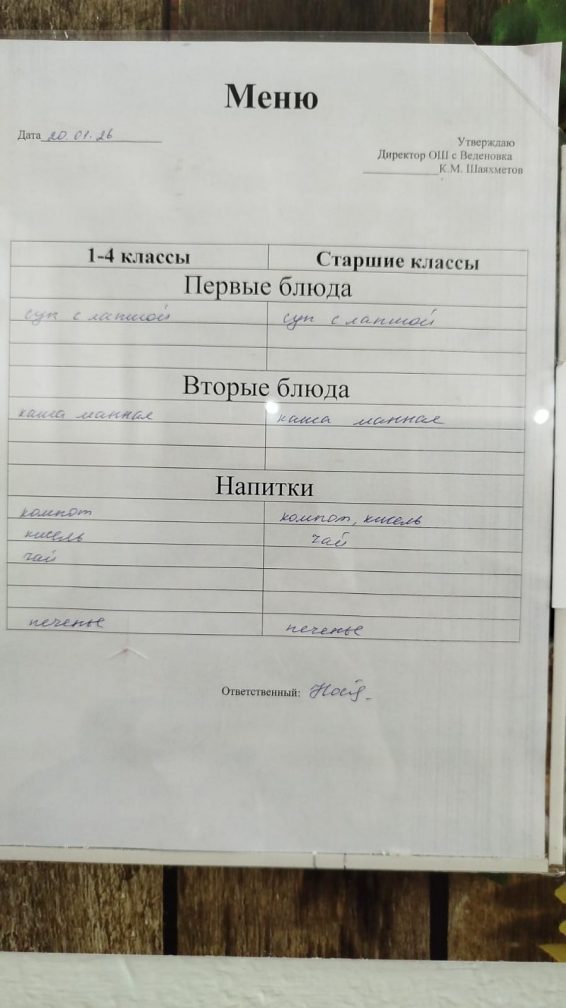 Меню
Дата 20.01.26
Утверждаю
Директор ОШ с Веденовка
К.М. Шаяхметов
1-4 классы Старшие классы
Первые блюда
суп с лапшой суп с лапшой
Вторые блюда
каша манная каша манная
Напитки
компот компот, кисель
кисель чай
чай
печенье печенье
Ответственный: